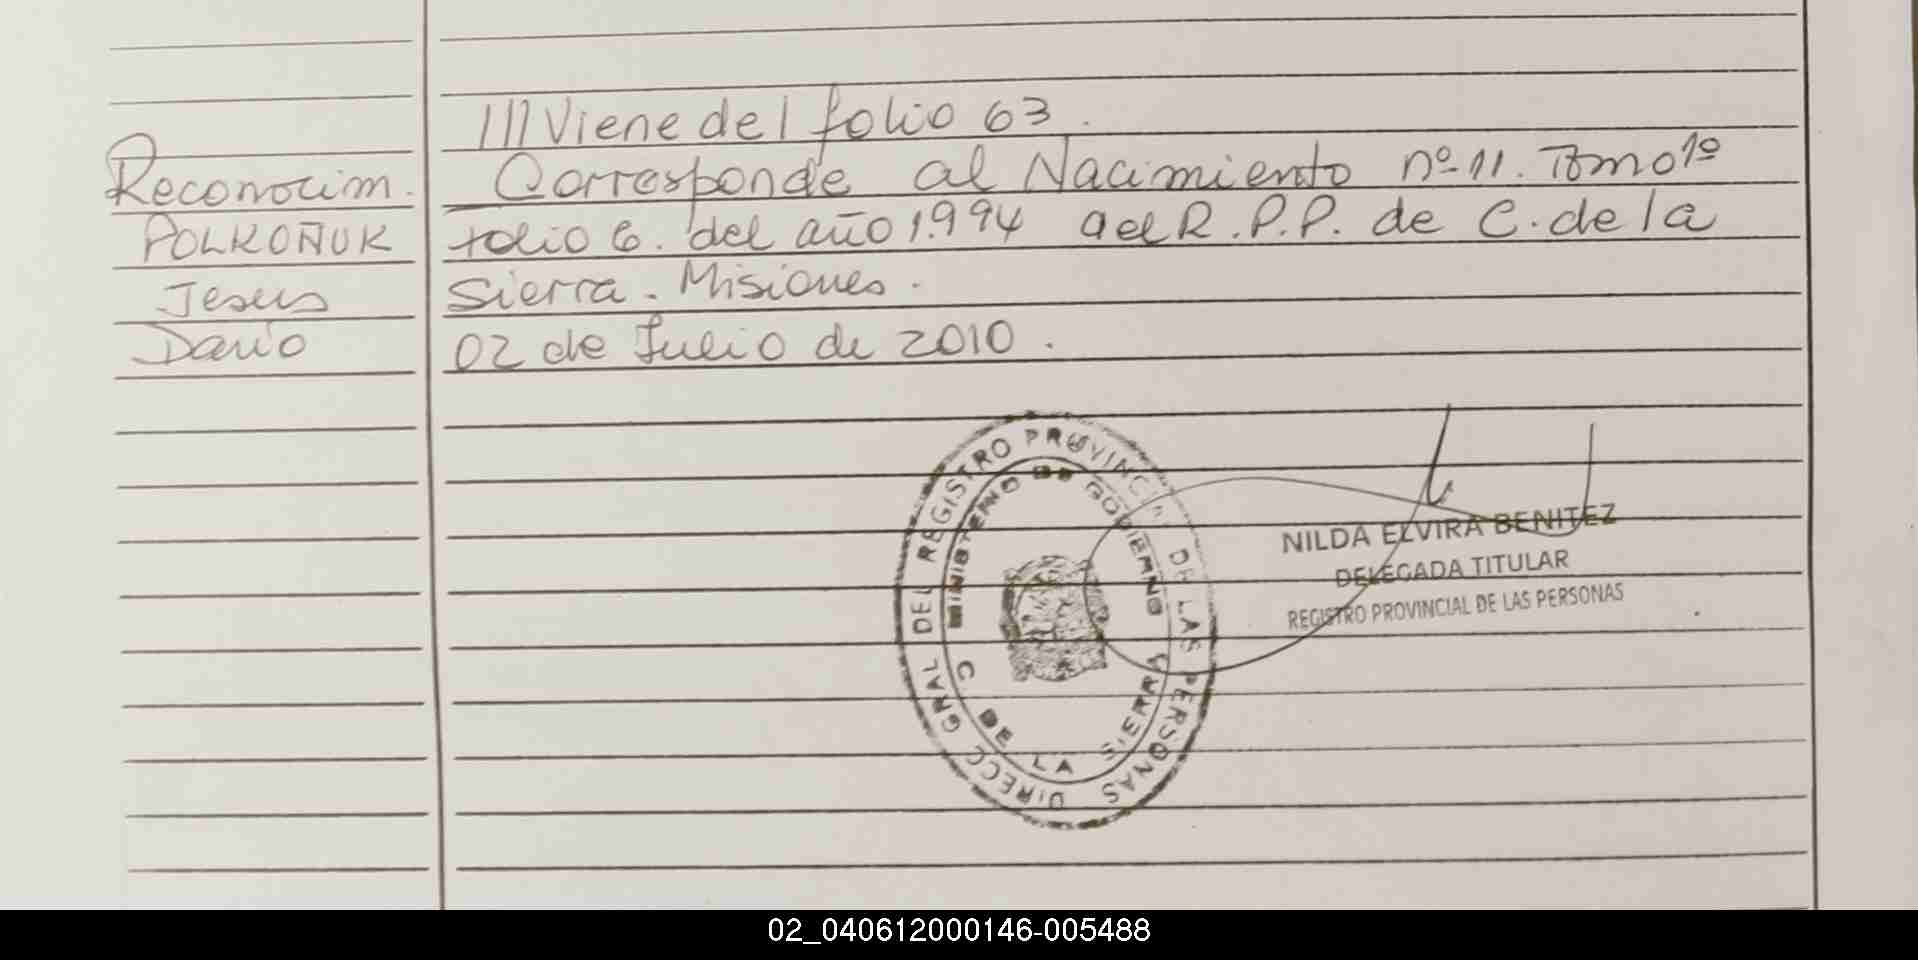 III Viene del folio 63.
Corresponde al Nacimiento nº 11. Tomo 1º
folio 6. del año 1.994 del R.P.P. de C. de la
Sierra. Misiones.
02 de Julio de 2010.
Reconocim.
POLKOÑUK
Jesus
Dario
DIRECC GRAL DEL REGISTRO PROVINCIAL DE LAS PERSONAS
MINISTERIO DE GOBIERNO
C DE LA SIERRA
NILDA ELVIRA BENITEZ
DELEGADA TITULAR
REGISTRO PROVINCIAL DE LAS PERSONAS
02_040612000146-005488